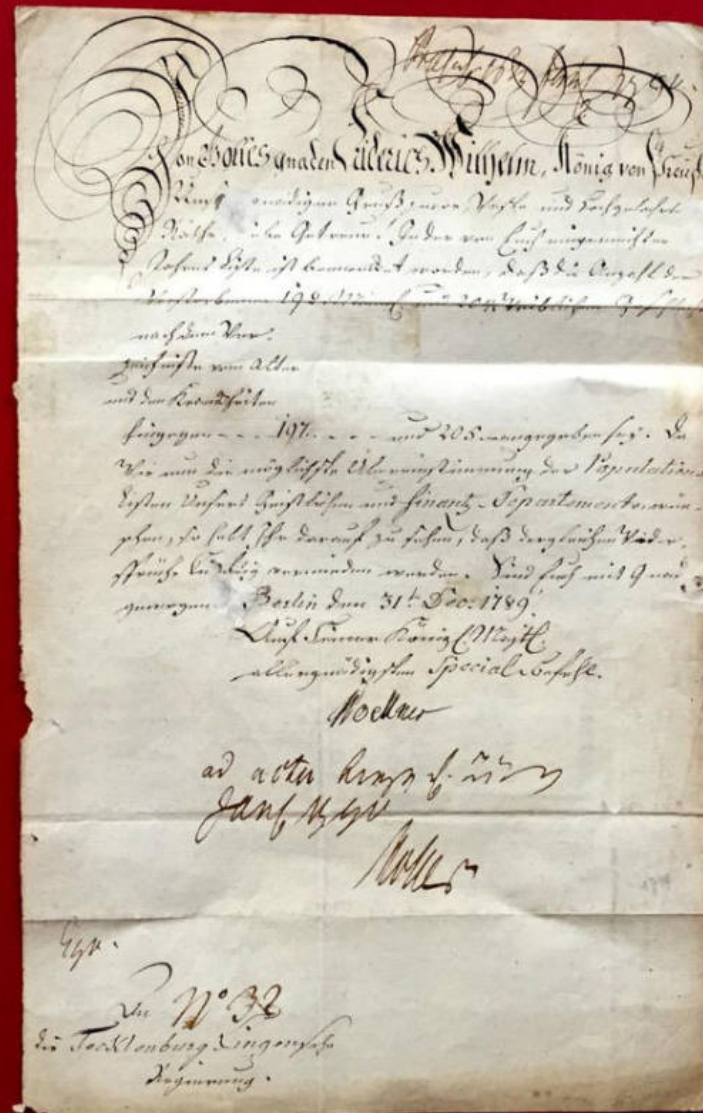 Von Gottes gnaden Friderich Wilhelm, König von Preuß
Unsern gnädigen Gruß zuvor, Veste und Hochgelahrte
Räthe, liebe Getreue! In der von Euch eingereichten
Jahres Liste ist bemerket worden, daß die Anzahl der
Verstorbenen 198 und weiblichen
nach dem Ver-
zeichniße vom Alter
und den Krankheiten
hingegen - - - 197 - - - und 205 angegeben sey. Da
Wir nun die möglichste Übereinstimmung der Populations-
Listen Unsers Geistlichen und Finantz-Departements wün-
schen, so habt Ihr darauf zu sehen, daß dergleichen Wider-
sprüche künftig vermieden werden. Sind Euch mit Gnaden
gewogen. Berlin den 31t Dec: 1789.
Auf Seiner Königl. Majtt.
allergnädigsten Special-Befehl.
Woellner
ad acta
No 32
An
die Tecklenburg Lingensche
Regierung.